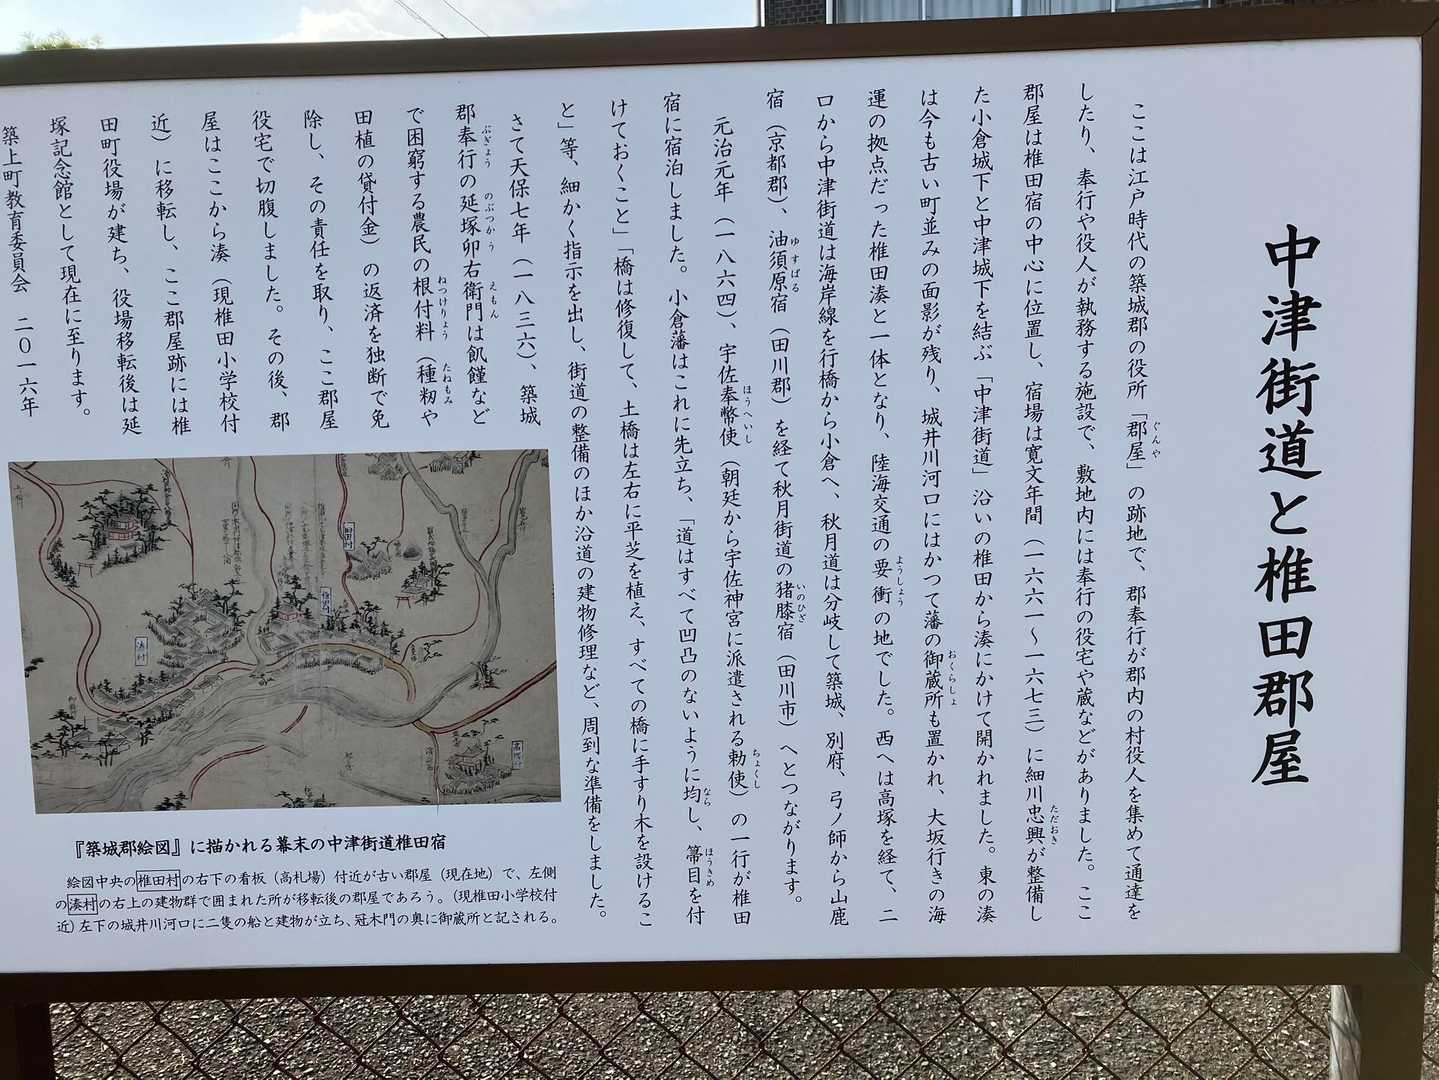 中津街道と椎田郡屋
ここは江戸時代の築城郡の役所「郡屋」の跡地で、郡奉行が郡内の村役人を集めて通達を
ぐんや
したり、奉行や役人が執務する施設で、敷地内には奉行の役宅や蔵などがありました。ここ
郡屋は椎田宿の中心に位置し、宿場は寛文年間（一六六一～一六七三）に細川忠興が整備し
ただおき
た小倉城下と中津城下を結ぶ「中津街道」沿いの椎田から湊にかけて開かれました。東の湊
は今も古い町並みの面影が残り、城井川河口にはかつて藩の御蔵所も置かれ、大坂行きの海
おくらしょ
運の拠点だった椎田湊と一体となり、陸海交通の要衝の地でした。西へは高塚を経て、二
ようしょう
口から中津街道は海岸線を行橋から小倉へ、秋月道は分岐して築城、別府、弓ノ師から山鹿
宿（京都郡）、油須原宿（田川郡）を経て秋月街道の猪膝宿（田川市）へとつながります。
ゆすばる
いのひざ
元治元年（一八六四）、宇佐奉幣使（朝廷から宇佐神宮に派遣される勅使）の一行が椎田
ほうへいし
ちょくし
宿に宿泊しました。小倉藩はこれに先立ち、「道はすべて凹凸のないように均し、箒目を付
なら
ほうきめ
けておくこと」「橋は修復して、土橋は左右に平芝を植え、すべての橋に手すり木を設けるこ
と」等、細かく指示を出し、街道の整備のほか沿道の建物修理など、周到な準備をしました。
さて天保七年（一八三六）、築城
郡奉行の延塚卯右衛門は飢饉など
ぶぎょう
のぶつか
う
えもん
で困窮する農民の根付料（種籾や
ねつけりょう
たねもみ
田植の貸付金）の返済を独断で免
除し、その責任を取り、ここ郡屋
役宅で切腹しました。その後、郡
屋はここから湊（現椎田小学校付
近）に移転し、ここ郡屋跡には椎
田町役場が建ち、役場移転後は延
塚記念館として現在に至ります。
築上町教育委員会　二〇一六年
湊村
高塚村
『築城郡絵図』に描かれる幕末の中津街道椎田宿
絵図中央の椎田村の右下の看板（高札場）付近が古い郡屋（現在地）で、左側
の湊村の右上の建物群で囲まれた所が移転後の郡屋であろう。（現椎田小学校付
近）左下の城井川河口に二隻の船と建物が立ち、冠木門の奥に御蔵所と記される。